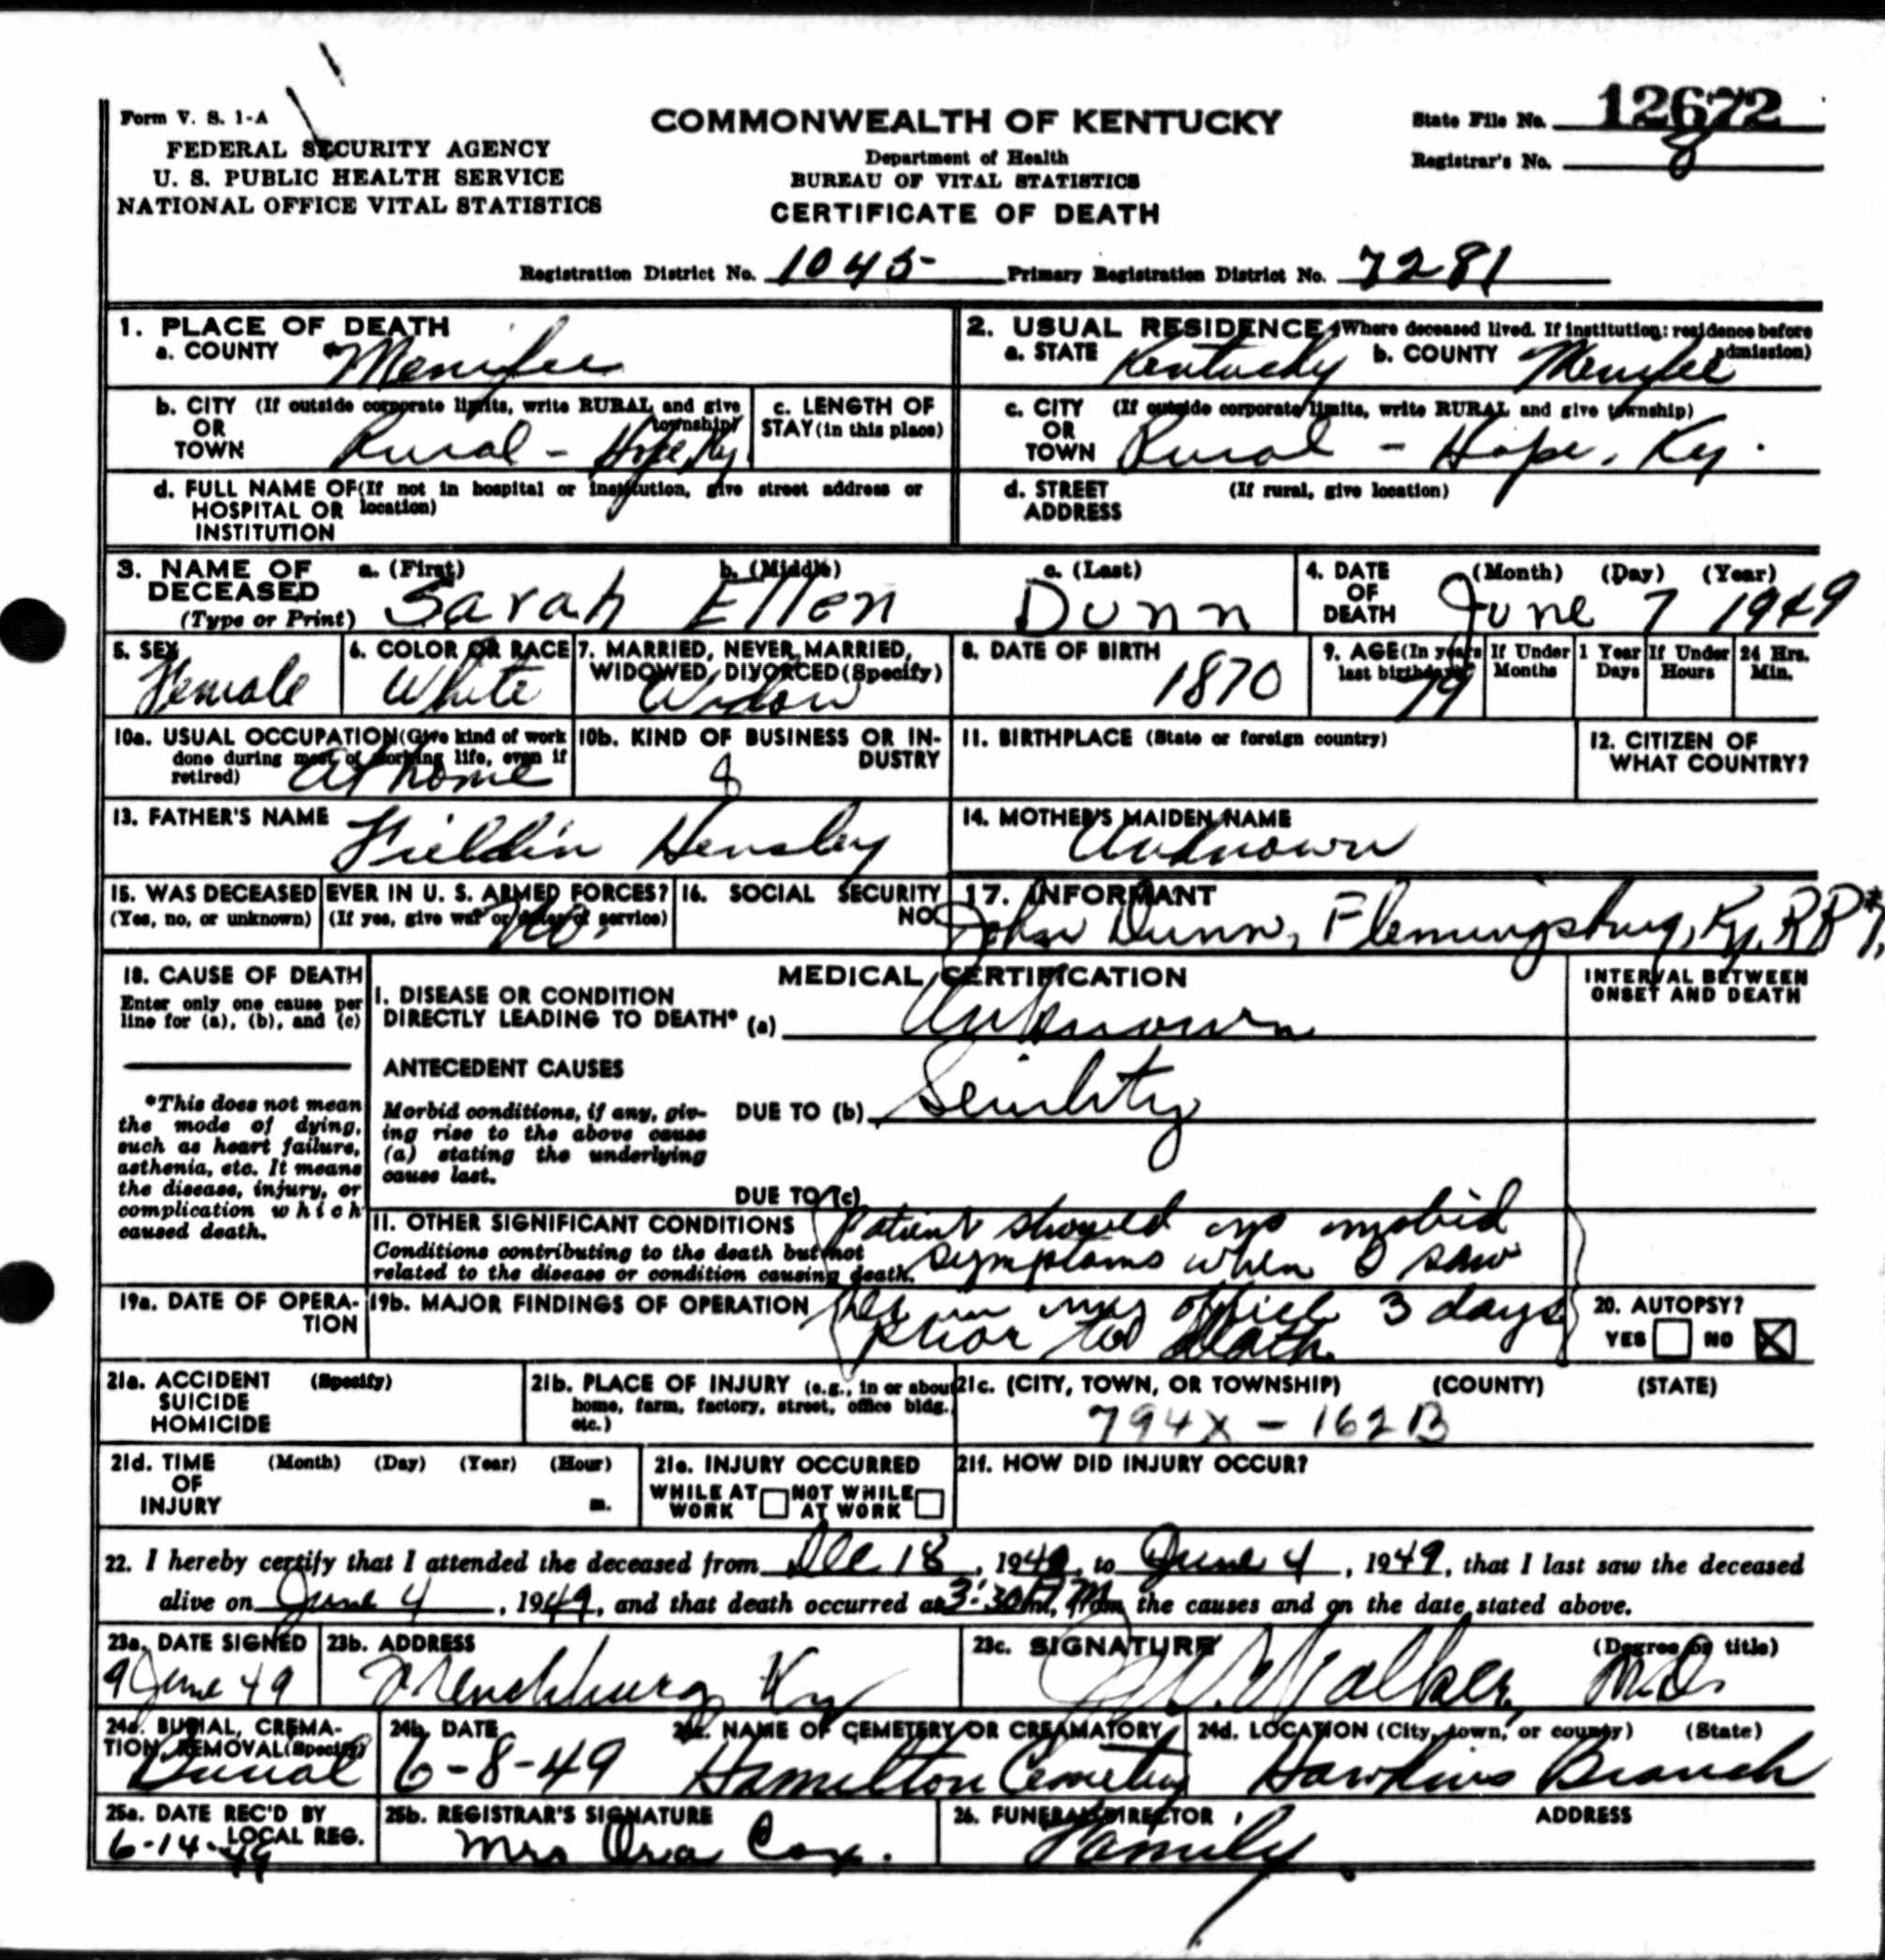 Form V. S. 1-A
FEDERAL SECURITY AGENCY
U. S. PUBLIC HEALTH SERVICE
NATIONAL OFFICE VITAL STATISTICS
COMMONWEALTH OF KENTUCKY
Department of Health
BUREAU OF VITAL STATISTICS
CERTIFICATE OF DEATH
State File No. 12672
Registrar's No. 8
Registration District No. 1045 Primary Registration District No. 7281
1. PLACE OF DEATH
a. COUNTY Menifee
2. USUAL RESIDENCE (Where deceased lived. If institution: residence before admission)
a. STATE Kentucky b. COUNTY Menifee
b. CITY (If outside corporate limits, write RURAL and give township)
OR
TOWN Rural - Hope, Ky.
c. LENGTH OF
STAY (in this place)
c. CITY (If outside corporate limits, write RURAL and give township)
OR
TOWN Rural - Hope, Ky.
d. FULL NAME OF (If not in hospital or institution, give street address or
HOSPITAL OR location)
INSTITUTION
d. STREET (If rural, give location)
ADDRESS
3. NAME OF DECEASED
(Type or Print)
a. (First) Sarah b. (Middle) Ellen c. (Last) Dunn
4. DATE OF DEATH (Month) (Day) (Year)
June 7 1949
5. SEX Female
6. COLOR OR RACE White
7. MARRIED, NEVER MARRIED,
WIDOWED, DIVORCED (Specify)
Widow
8. DATE OF BIRTH
1870
9. AGE (In years last birthday) 79
If Under 1 Year Months Days
If Under 24 Hrs. Hours Min.
10a. USUAL OCCUPATION (Give kind of work
done during most of working life, even if
retired) at home
10b. KIND OF BUSINESS OR INDUSTRY
11. BIRTHPLACE (State or foreign country)
12. CITIZEN OF
WHAT COUNTRY?
13. FATHER'S NAME Fieldin Hensley
14. MOTHER'S MAIDEN NAME
Unknown
15. WAS DECEASED EVER IN U. S. ARMED FORCES?
(Yes, no, or unknown) (If yes, give war or dates of service)
No.
16. SOCIAL SECURITY
NO.
17. INFORMANT
John Dunn, Flemingsburg, Ky.
18. CAUSE OF DEATH
Enter only one cause per
line for (a), (b), and (c)
*This does not mean
the mode of dying,
such as heart failure,
asthenia, etc. It means
the disease, injury, or
complication which
caused death.
MEDICAL CERTIFICATION
INTERVAL BETWEEN
ONSET AND DEATH
I. DISEASE OR CONDITION
DIRECTLY LEADING TO DEATH* (a) Unknown
ANTECEDENT CAUSES
Morbid conditions, if any, giv-
ing rise to the above cause
(a) stating the underlying
cause last.
DUE TO (b) Senility
DUE TO (c)
II. OTHER SIGNIFICANT CONDITIONS
Conditions contributing to the death but not
related to the disease or condition causing death.
Patient showed no mobid
symptoms when I saw
her in my office 3 days
prior to death.
19a. DATE OF OPERA-
TION
19b. MAJOR FINDINGS OF OPERATION
20. AUTOPSY?
YES NO X
21a. ACCIDENT (Specify)
SUICIDE
HOMICIDE
21b. PLACE OF INJURY (e.g., in or about
home, farm, factory, street, office bldg.
etc.)
21c. (CITY, TOWN, OR TOWNSHIP) (COUNTY) (STATE)
794X - 162B
21d. TIME (Month) (Day) (Year) (Hour)
OF
INJURY m.
21e. INJURY OCCURRED
WHILE AT WORK NOT WHILE AT WORK
21f. HOW DID INJURY OCCUR?
22. I hereby certify that I attended the deceased from Dec 18, to June 4, 1949, that I last saw the deceased
alive on June 4, 1949, and that death occurred at 3:30 m., from the causes and on the date stated above.
23a. DATE SIGNED
9 June 49
23b. ADDRESS
Frenchburg Ky
23c. SIGNATURE (Degree or title)
Walker, M.D.
24a. BURIAL, CREMA-
TION, REMOVAL (Specify)
Burial
24b. DATE
6-8-49
24c. NAME OF CEMETERY OR CREAMATORY
Hamilton Cemetery
24d. LOCATION (City, town, or county) (State)
Hawkins Branch
25a. DATE REC'D BY
LOCAL REG.
6-14-49
25b. REGISTRAR'S SIGNATURE
Mrs Ora Cox.
26. FUNERAL DIRECTOR ADDRESS
Family